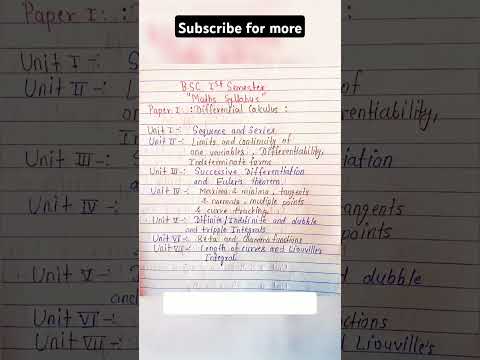 Subscribe for more
BSC Ist Semester
"Maths Syllabus"
Paper I :: Differential Calculus :
Unit I -: Sequence and Series
Unit II -: Limits and continuity of
one variables, Differentiability,
Indeterminate forms
Unit III -: Successive Differentiation
and Euler's theorem
Unit IV -: Maxima & minima, tangents
& normals, multiple points
& curve tracking
Unit V -: Difinite/Indifinite and dubble
and tripple Integrals
Unit VI -: Beta and Gamma functions
Unit VII -: Length of curves and Liouville's
Integral
Paper I :
Unit I -:
Unit II -:
Unit III -:
Unit IV -:
Unit V -:
Unit VI -:
Unit VII -:
iation
tangents
points
dubble
ctions
Liouville's